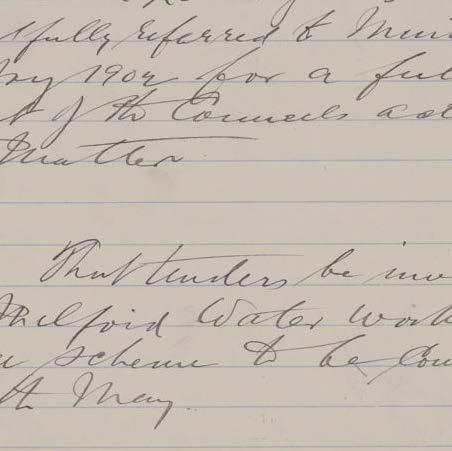 fully referred to Mini
1902 for a ful
of th Councils act
Matter
That tenders be inv
Milford Water Work
scheme to be Com
th May